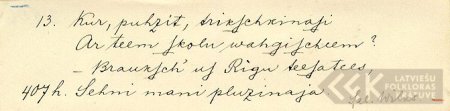 13. Kur, puhzit, trikschkinasi
Ar teem skolu wahgischeem?
– Brauksch' us Rīgu teesatees,
407h. Sehni mani pluzinaja.
LATVIEŠU
FOLKLORAS
KRĀTUVE